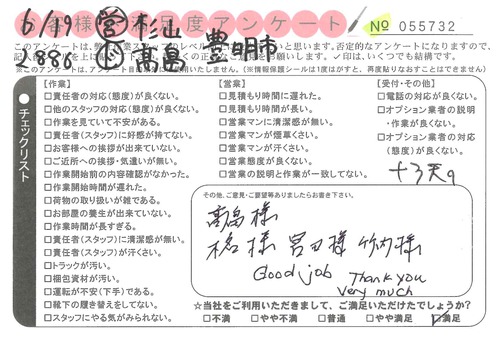 6/19 営 杉山 豊明市
お客様満足度アンケート
No 055732
2886 髙畠
このアンケートは、
否定的なアンケートになりますので、
✓印は、いくつでも結構です。
※このアンケートは、アンケート自
いたしません。(※情報保護シールは1度はがすと、再度貼りなおすことはできません)
チェックリスト
【作業】
□責任者の対応(態度)が良くない。
□他のスタッフの対応(態度)が良くない。
□作業を見ていて不安がある。
□責任者(スタッフ)に好感が持てない。
□お客様への挨拶が出来ていない。
□ご近所への挨拶・気遣いが無い。
□作業開始前の内容確認がなかった。
□作業開始時間が遅れた。
□荷物の取り扱いが雑である。
□お部屋の養生が出来ていない。
□作業時間が長すぎる。
□責任者(スタッフ)に清潔感が無い。
□責任者(スタッフ)が汗くさい。
□トラックが汚い。
□梱包資材が汚い。
□運転が不安(下手)である。
□靴下の履き替えをしてない。
□スタッフにやる気がみられない。
【営業】
□見積もり時間に遅れた。
□見積もり時間が長い。
□営業マンに清潔感が無い。
□営業マンが煙草くさい。
□営業マンが汗くさい。
□営業態度が良くない。
□営業の説明と作業が一致してない。
【受付・その他】
□電話の対応が良くない。
□オプション業者の説明
・作業が良くない。
□オプション業者の対応
(態度)が良くない。
その他、ご意見・ご要望等ありましたらお書き下さい。
様
様 宮田様 竹内様
Good job Thank you
very much
☆当社をご利用いただきまして、ご満足いただけたでしょうか?
□不満 □やや不満 □普通 □やや満足 ☑満足